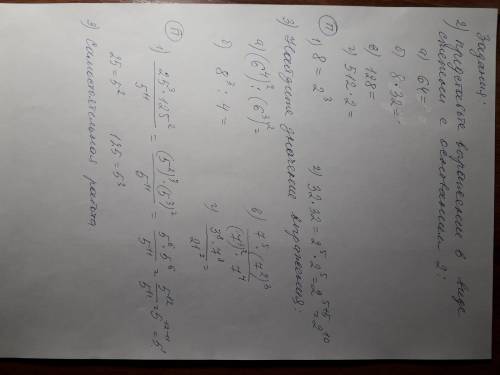 Задания:
2) представьте выражении в виде
степени с основанием 2:
а) 64 =
б) 8 · 32 =
в) 128 =
г) 512 · 2 =
П 1) 8 = 2³ 2) 32 · 32 = 2⁵ · 2⁵ = 2⁵⁺⁵ = 2¹⁰
3) Найдите значение выражения:
а) (6⁴)² : (6³)² =
б) 8³ : 4 =
в) 7⁵ · (7²)³ / (7²)² · 7⁴
г) 3⁸ · 7⁸ / 21⁷ =
П 1) 25³ · 125² / 5¹¹ = (5²)³ · (5³)² / 5¹¹ = 5⁶ · 5⁶ / 5¹¹ = 5¹² / 5¹¹ = 5¹²⁻¹¹ = 5¹
25 = 5² 125 = 5³
3) Самостоятельная работа